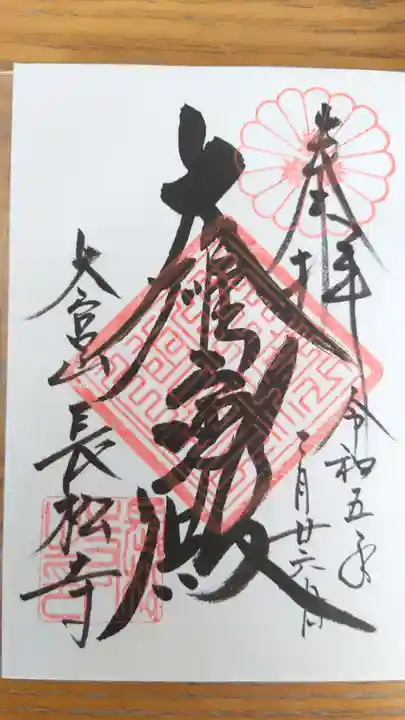 奉拝
令和五年
二月廿六日
大雄宝殿
大宮山長松寺